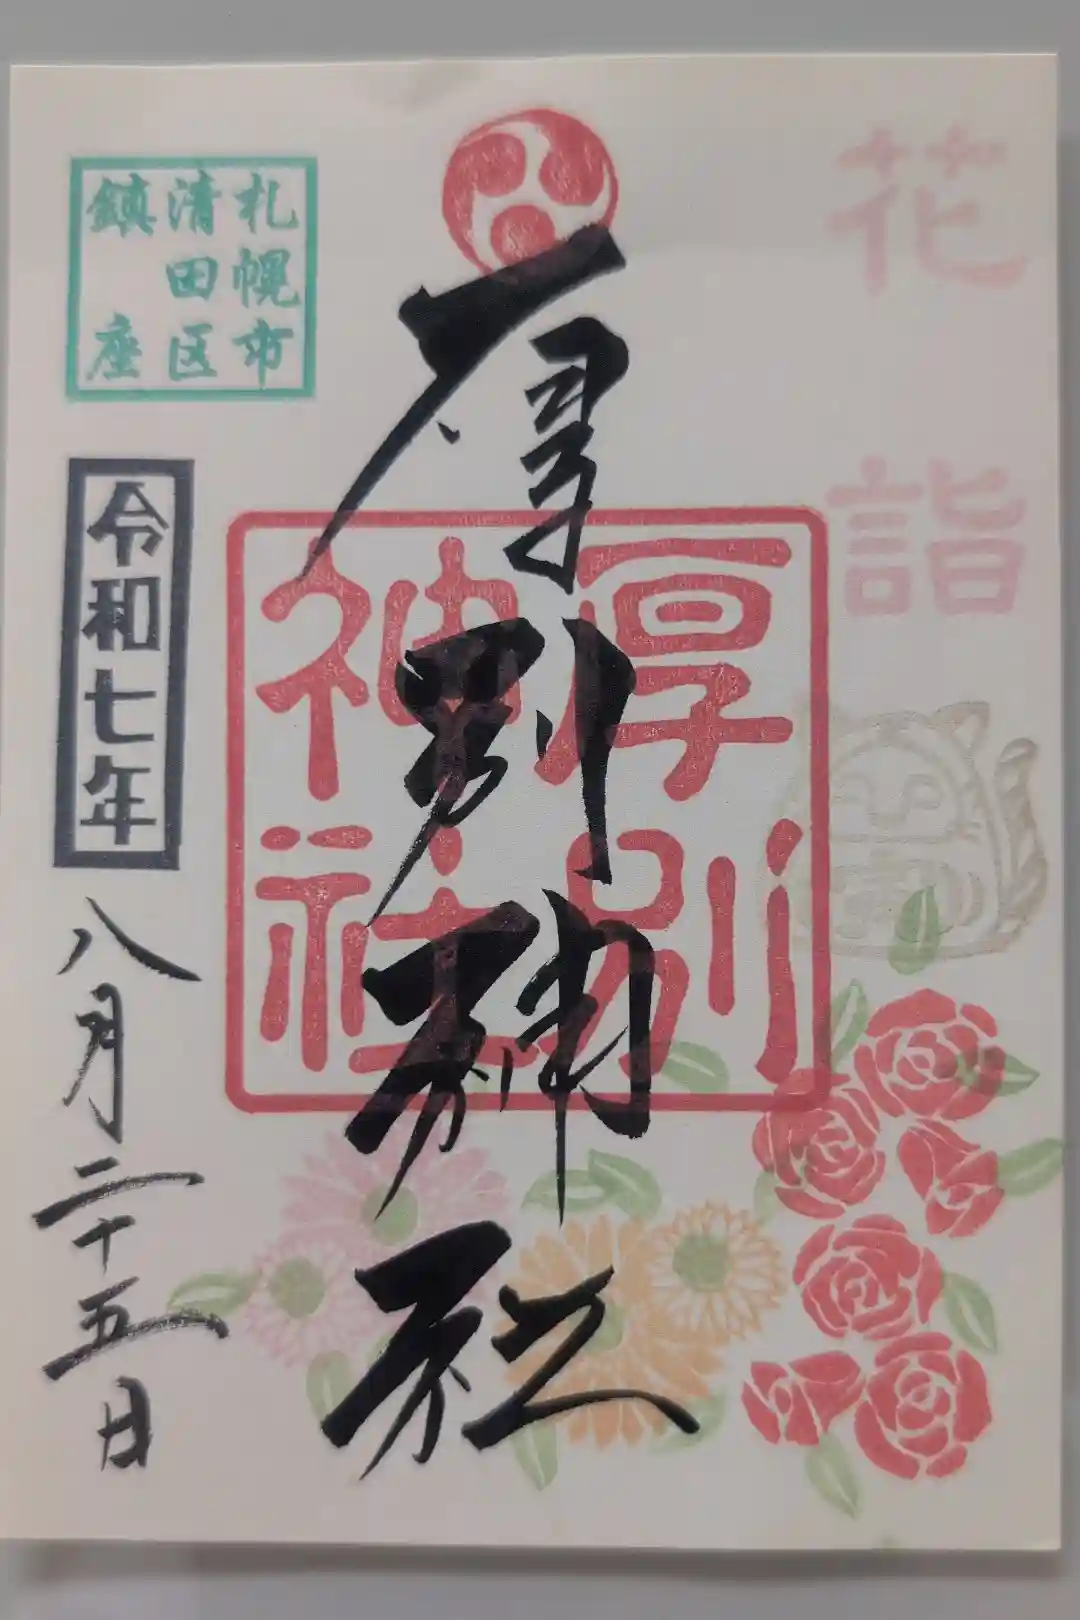 花詣
厚別神社
厚別
神社
札幌市
清田区
鎮座
令和七年
八月二十五日